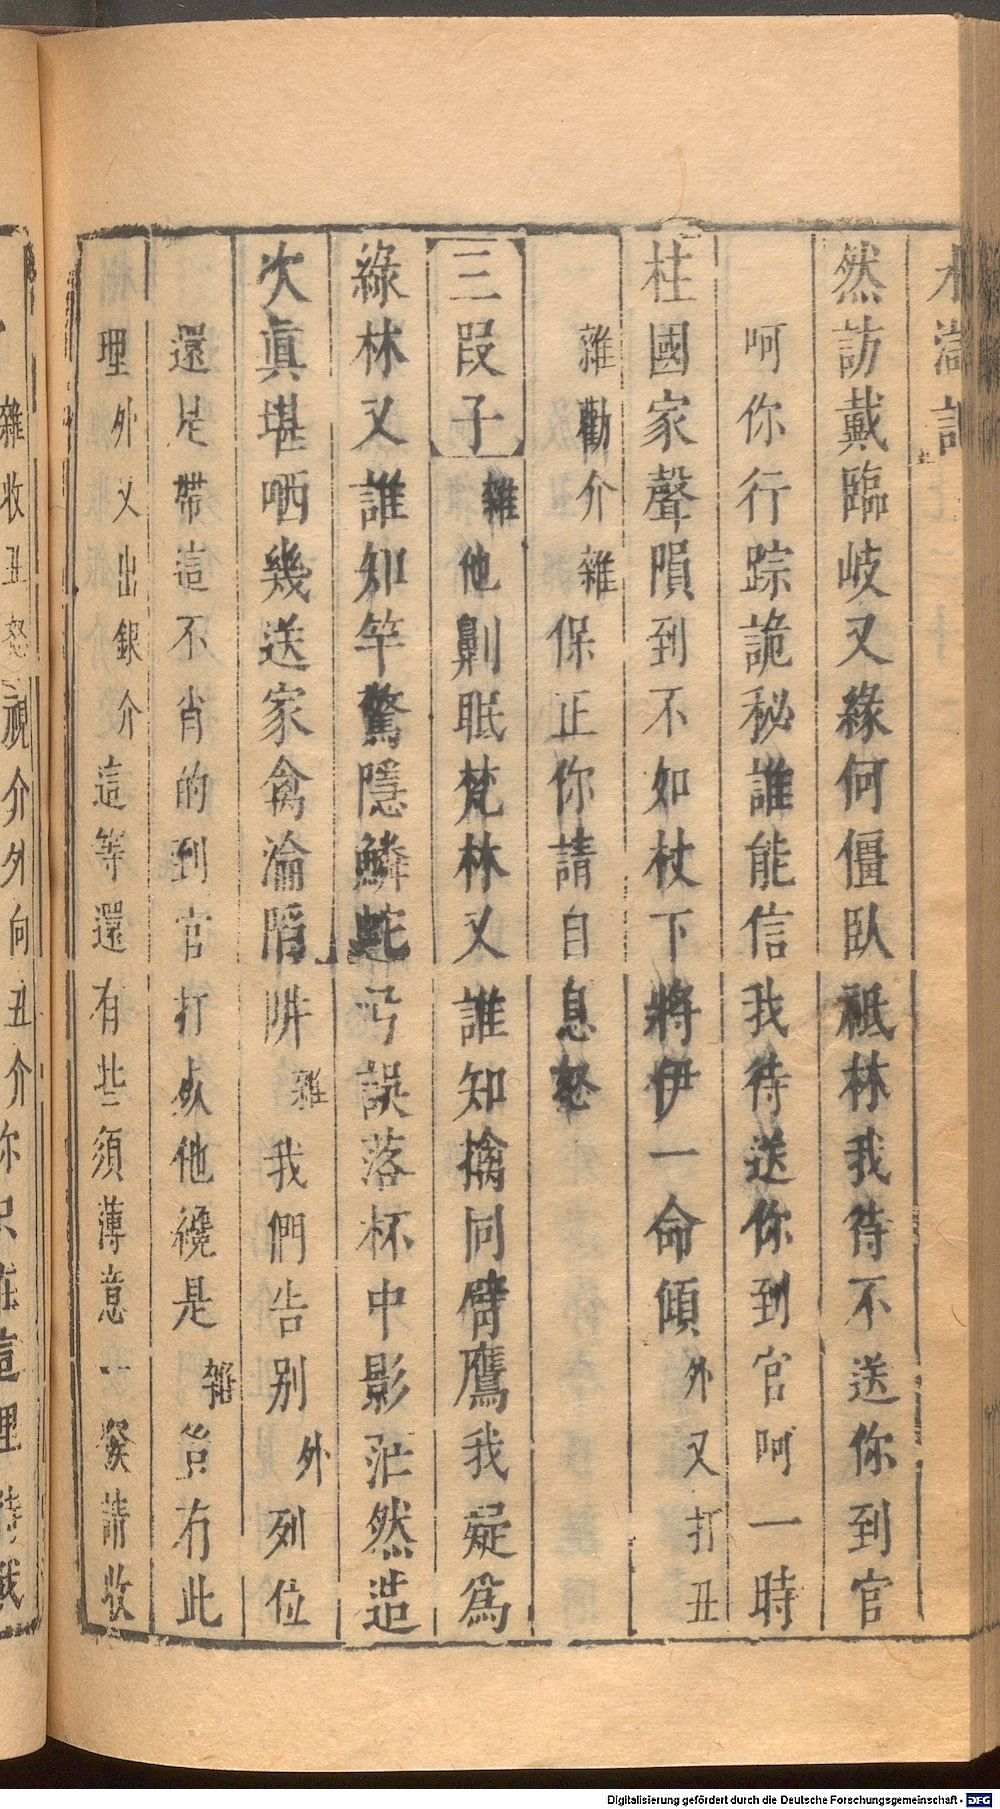 水滸記
然訪戴臨岐又緣何僵臥祗林我待不送你到官
呵你行踪詭秘誰能信我待送你到官呵一時
柱國家聲隕到不如杖下將伊一命傾外又打丑
雜勸介雜保正你請自息怒
三段子雜他鼾眠梵林又誰知擒同臂鷹我疑爲
綠林又誰知竿驚隱鱗蛇弓誤落杯中影茫然造
次真堪哂幾送家禽淪陷阱雜我們告别外列位
還是帶這不肖的到官打㸃他纔是雜豈有此
理外又出銀介這等還有些須薄意一發請收
雜收丑怒視介外向丑介你只在這裡待我
Digitalisierung gefördert durch die Deutsche Forschungsgemeinschaft - DFG